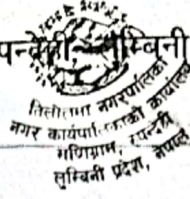 लुम्बिनी
तिलोत्तमा नगरपालिका
नगर कार्यपालिकाको कार्यालय
मणिग्राम, रुपन्देही
लुम्बिनी प्रदेश, नेपाल